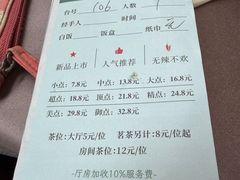 台号 106 人数 1
经手人 时间
白饭 饭盒 纸巾 元
新品上市 人气推荐 无辣不欢
小点：7.8元 中点：13.8元 大点：16.8元
超点：18.8元 顶点：21.8元 精点：24.8元
美点：29.8元 御点：32.8元
茶位：大厅5元/位 茗茶另计：8元/位起
房间茶位：12元/位
-厅房加收10%服务费-